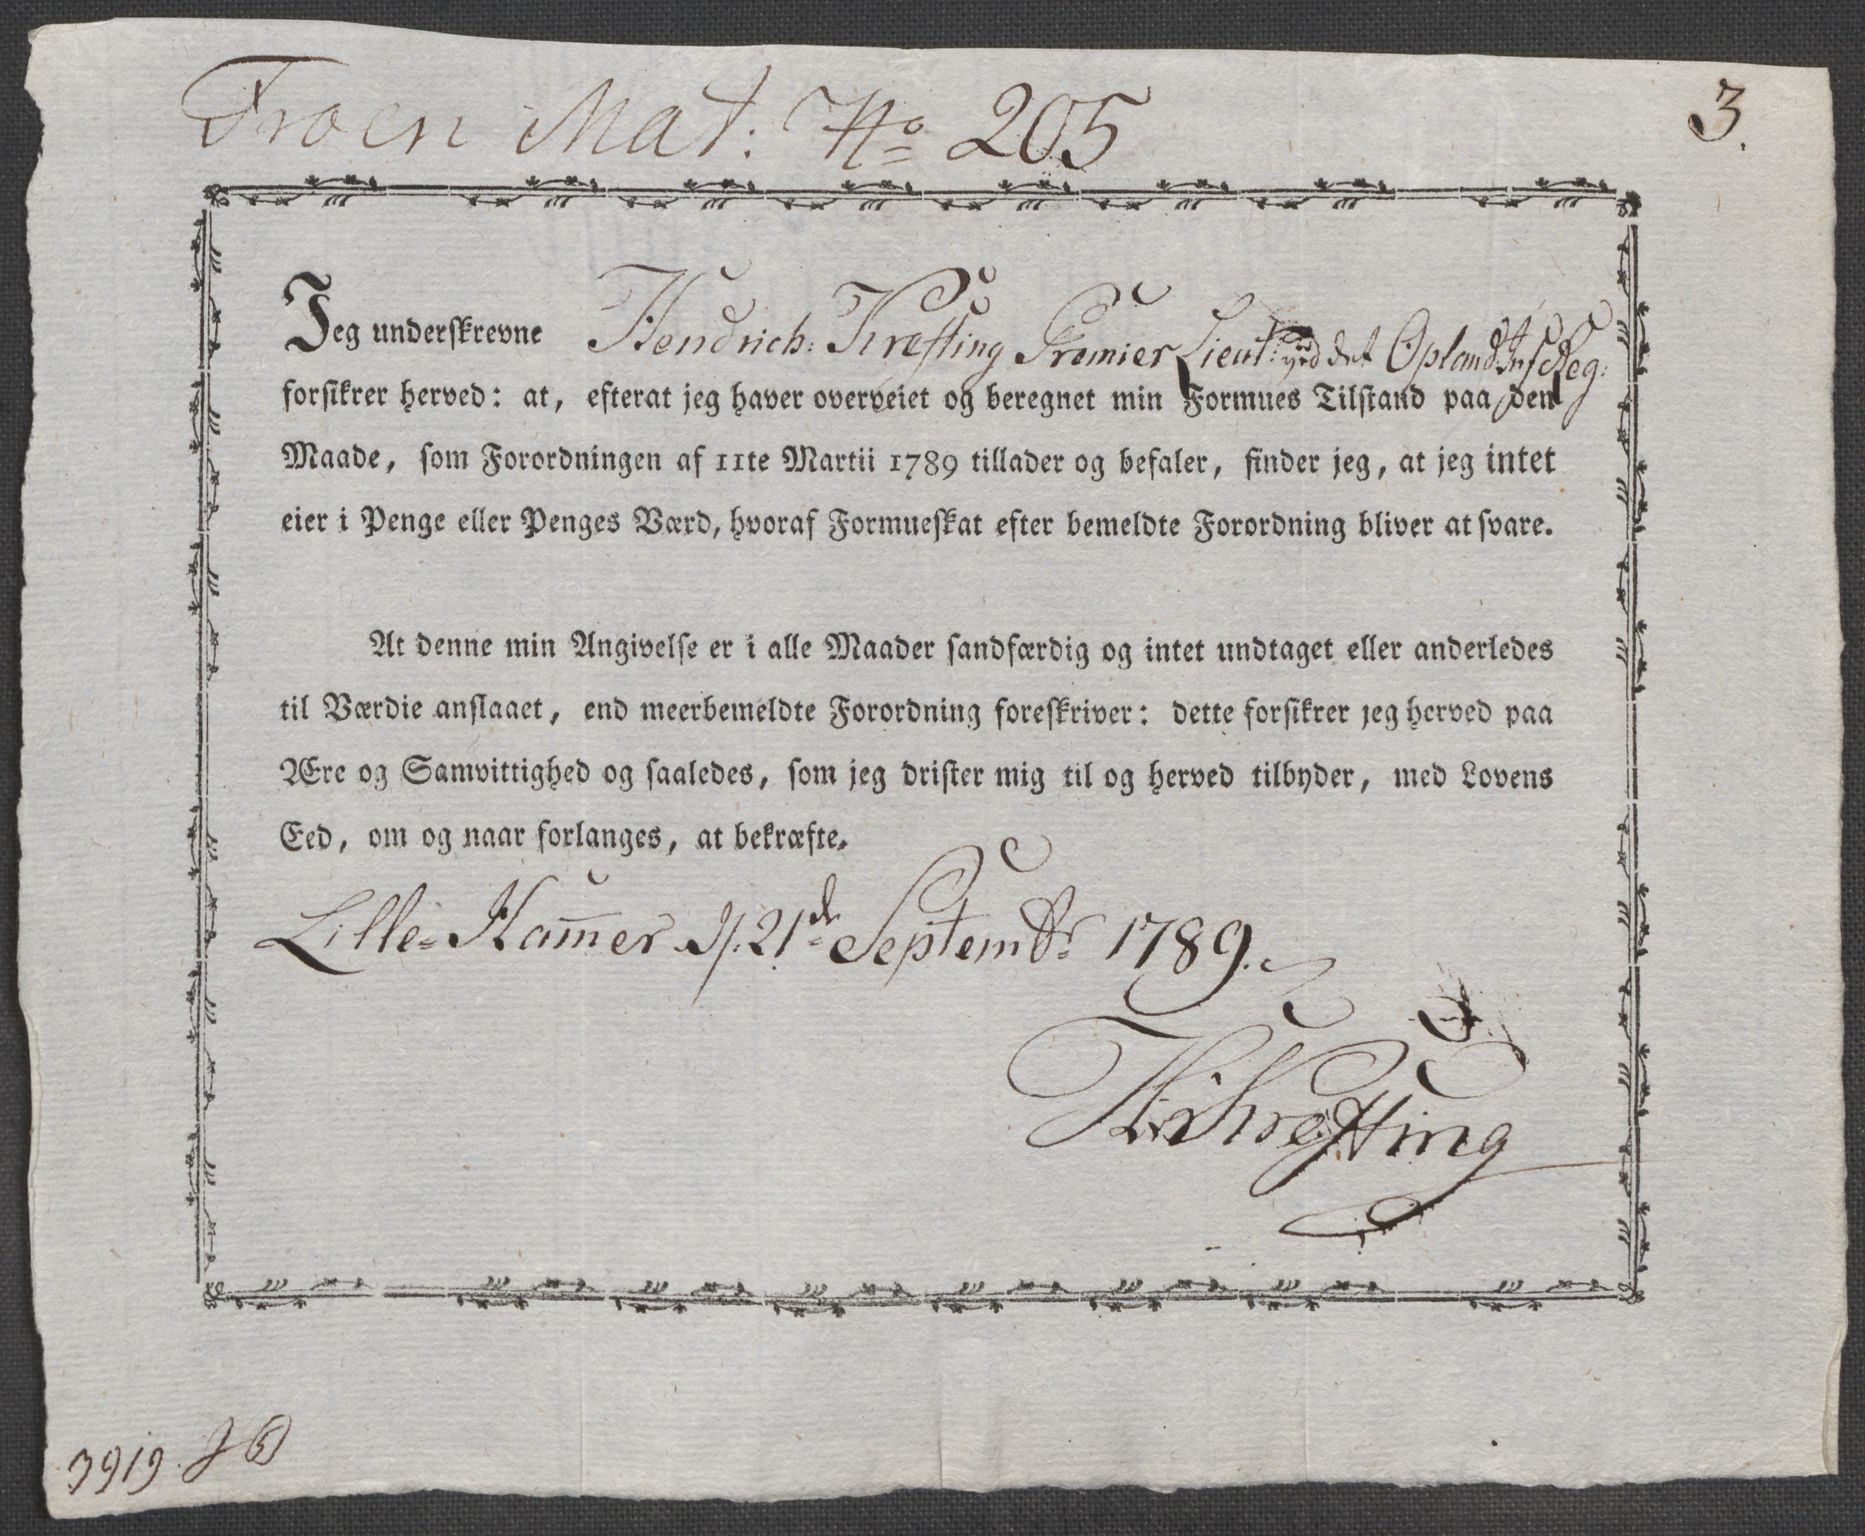 Froen Mat: No 205
3.
Jeg underskrevne Hendrich: Krefting Premier Lieut: ved det Opland: Inf: Reg:
forsikrer herved: at, efterat jeg haver overveiet og beregnet min Formues Tilstand paa den
Maade, som Forordningen af 11te Martii 1789 tillader og befaler, finder jeg, at jeg intet
eier i Penge eller Penges Værd, hvoraf Formueskat efter bemeldte Forordning bliver at svare.
At denne min Angivelse er i alle Maader sandfærdig og intet undtaget eller anderledes
til Værdie anslaaet, end meerbemeldte Forordning foreskriver: dette forsikrer jeg herved paa
Ære og Samvittighed og saaledes, som jeg drister mig til og herved tilbyder, med Lovens
Eed, om og naar forlanges, at bekræfte.
Lille-Ham̅er d. 21de Septembr: 1789.
H: Krefting
3919